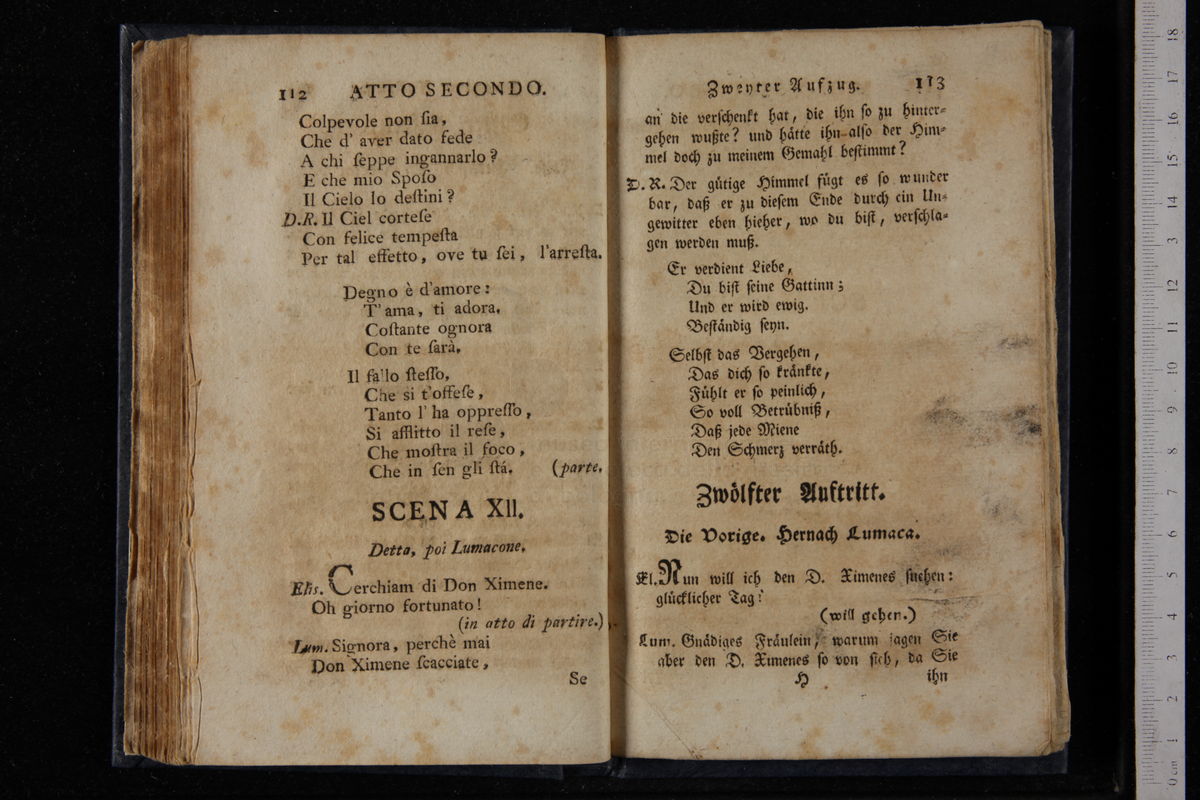 112 ATTO SECONDO.
Colpevole non ſia,
Che d' aver dato fede
A chi ſeppe ingannarlo?
E che mio Spoſo
Il Cielo lo deſtini?
D.R. Il Ciel corteſe
Con felice tempeſta
Per tal effetto, ove tu ſei, l'arreſta.
Degno è d'amore:
T' ama, ti adora,
Coſtante ognora
Con te ſarà.
Il fallo ſteſſo,
Che si t'offeſe,
Tanto l' ha oppreſſo,
Si afflitto il reſe,
Che moſtra il foco,
Che in ſen gli ſtá. (parte.
SCENA XII.
Detta, poi Lumacone.
Elis. Cerchiam di Don Ximene.
Oh giorno fortunato!
(in atto di partire.)
Lum. Signora, perchè mai
Don Ximene ſcacciate,
Se
Zweyter Aufzug. 113
an die verſchenkt hat, die ihn ſo zu hinter-
gehen wußte? und hätte ihn alſo der Him-
mel doch zu meinem Gemahl beſtimmt?
D. R. Der gütige Himmel fügt es ſo wunder
bar, daß er zu dieſem Ende durch ein Un-
gewitter eben hieher, wo du biſt, verſchla-
gen werden muß.
Er verdient Liebe,
Du biſt ſeine Gattinn;
Und er wird ewig.
Beſtändig ſeyn.
Selbſt das Vergehen,
Das dich ſo kränkte,
Fühlt er ſo peinlich,
So voll Betrübniß,
Daß jede Miene
Den Schmerz verräth.
Zwölfter Auftritt.
Die Vorige. Hernach Lumaca.
El. Nun will ich den D. Ximenes ſuchen:
glücklicher Tag!
(will gehen.)
Lum. Gnädiges Fräulein, warum jagen Sie
aber den D. Ximenes ſo von ſich, da Sie
H ihn
18
17
16
15
14
13
12
11
10
9
8
7
6
5
4
3
2
1
0 cm